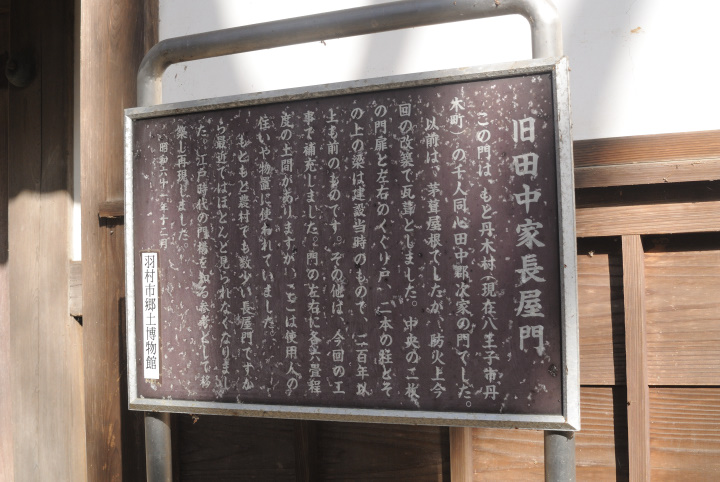 旧田中家長屋門
この門は、もと丹木村(現在八王子市丹
木町)の千人同心田中郡次家の門でした。
以前は、茅葺屋根でしたが、防火上今
回の改築で瓦葺としました。中央の二枚
の門扉と左右のくぐり戸、二本の柱とそ
の上の梁は建設当時のもので、二百年以
上も前のものです。その他は、今回の工
事で補充しました。門の左右に各六畳程
度の土間がありますが、ここは使用人の
住いや物置に使われていました。
もともと農村でも数少い長屋門ですが
ら最近ではほとんど見られなくなりまし
た。江戸時代の門構を知る参考として移
築し再現しました。
昭和六十一年十二月
羽村市郷土博物館